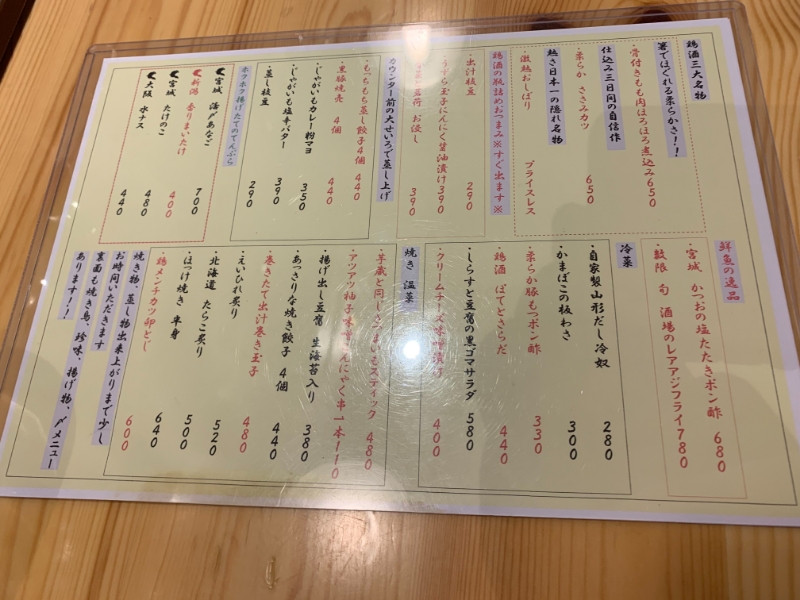 鶏酒三大名物
箸でほぐれる柔らかさ!!
・骨付きもも肉ほろほろ煮込み650
仕込み三日間の自信作
・柔らか ささみカツ 650
越き日本一の隠れ名物
・激越おしぼり プライスレス
鶏酒の瓶詰めおつまみ※すぐ出ます※
・出汁枝豆 290
うずら玉子にんにく醤油漬け390
お浸し 390
カウンター前の大せいろで蒸し上げ
・もっちもち蒸し餃子4個 440
・黒豚焼売 4個 440
・じゃがいもカレー粉マヨ 350
・じゃがいも塩辛バター 390
・蒸し枝豆 290
ホクホク揚げたてのてんぷら
宮城 活〆あなご 700
新潟 香りまいたけ 400
宮城 たけのこ 480
大阪 水ナス 440
鮮魚の逸品
・宮城 かつおの塩たたきポン酢 680
・数限 旬 酒場のレアアジフライ780
冷菜
・自家製山形だし冷奴 280
・かまぼこの板わさ 300
・柔らか豚もつポン酢 330
・鶏酒 ぽてとさらだ 440
・しらすと豆腐の黒ゴマサラダ 580
・クリームチーズ味噌漬け 400
焼き 温菜
・芋蔵と同じさつまいもスティック 480
・アツアツ柚子味噌こんにゃく串一本110
・揚げ出し豆腐 生海苔入り 380
・あっさりな焼き餃子 4個 440
・巻きたて出汁巻き玉子 480
・えいひれ炙り 520
・北海道 たらこ炙り 500
・ほっけ焼き 半身 640
・鶏メンチカツ卵とじ 600
焼き物、蒸し物出来上がりまで少し
お時間いただきます
裏面も焼き鳥、珍味、揚げ物、〆メニュー
あります!!